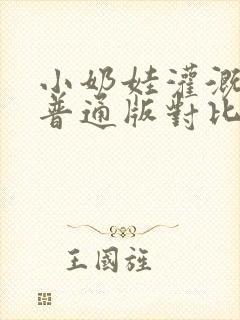 小奶娃灌溉
普通版對比
王國旌